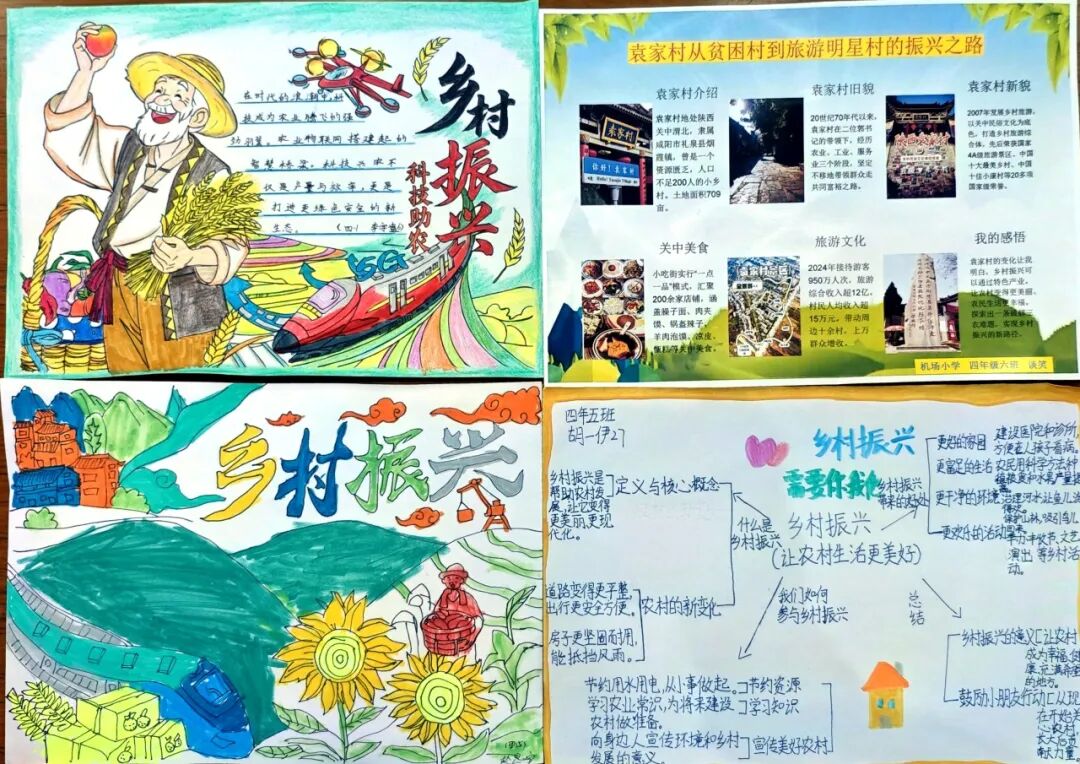 乡村
振兴
科技助农
在时代的浪潮中,科
技成为农业腾飞的强
劲羽翼。农业物联网搭建起的
智慧桥梁,科技兴农不
仅是产量与效率,更是
打造更绿色安全的新
生态。
5G
袁家村从贫困村到旅游明星村的振兴之路
袁家村介绍
袁家村
你好!袁家村
袁家村地处陕西
关中渭北,隶属
咸阳市礼泉县烟
霞镇,曾是一个
资源匮乏,人口
不足200人的小乡
村。土地面积709
亩。
袁家村旧貌
20世纪70年代以来,
袁家村在二位郭书
记的带领下,经历
农业、工业、服务
业三个阶段,坚定
不移地带领群众走
共同富裕之路。
袁家村新貌
2007年发展乡村旅游,
以关中民俗文化为底
色,打造乡村旅游综
合体,先后荣获国家
4A级旅游景区、中国
十大最美乡村、中国
十佳小康村等20多项
国家级荣誉。
关中美食
小吃街实行"一点
一品"模式,汇聚
200余家店铺,涵
盖臊子面、肉夹
馍、锅盔辣子、
羊肉泡馍、凉皮、
甑糕等关中美食。
旅游文化
袁家村景区
2024年接待游客
950万人次,旅游
综合收入超12亿,
村民人均收入超
15万元。带动周
边十余村、上万
群众增收。
我的感悟
袁家村的变化让我
明白,乡村振兴可
以通过特色产业,
让农村变得更美丽、
农民生活更幸福,
探索出一条破解三
农难题、实现乡村
振兴的新路径。
机场小学 四年级六班 谈笑
乡村振兴
四年五班
胡一伊27
乡村振兴
需要你我他
乡村振兴
(让农村生活更美好)
什么是
乡村振兴
定义与核心概念
乡村振兴是
帮助农村发
展,让它变得
更美丽、更现
代化。
农村的新变化
道路变得更平整,
出行更安全方便。
房子更坚固耐用,
能抵挡风雨。
乡村振兴
带来的好处
更好的家园
建设医院和诊所,
方便老人孩子看病。
更富足的生活
农民用科学方法种
植粮食和水果产量提高
更干净的环境
治理河水,让鱼儿游
保护山林,吸引鸟儿
更欢乐的活动
举办丰收节、文艺
演出等乡村活
动。
我们如何
参与乡村振兴
节约用水用电,从小事做起。
节约资源
学习农业常识,为将来建设
农村做准备。
学习知识
向身边人宣传环境和乡村
发展的意义。
宣传美好农村
总结
乡村振兴的意义
让农村
成为幸福、健
康、充满希望
的地方。
鼓励小朋友行动
从现
在开始关
心农村,
长大后贡
献力量。